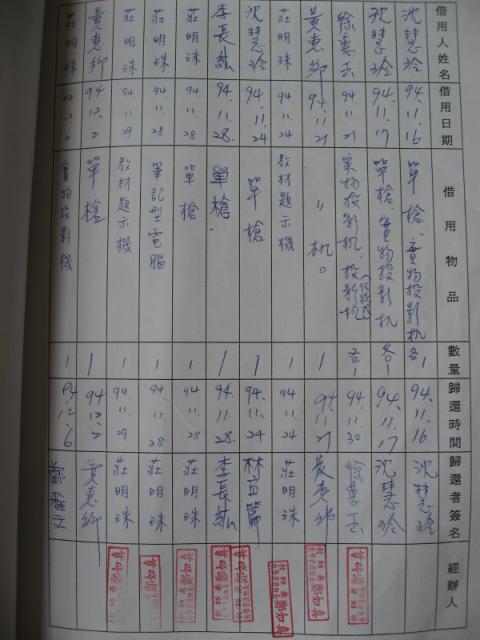 借用人姓名 借用日期 借用物品 數量 歸還時間 歸還者簽名 經辦人
沈慧玲 94.11.16 單槍、實物投影机 各1 94.11.16 沈慧玲
沈慧玲 94.11.17 單槍、實物投影机 各1 94.11.17 沈慧玲
徐蕙 94.11.21 实物投影机、投影机 各1 94.11.30 徐蕙
黃惠卿 94.11.21 〃 机。 1 94.11.21 黃惠卿
莊明珠 94.11.24 教材題示機 1 94.11.24 莊明珠
沈慧玲 94.11.24 單槍 1 94.11.24 林宜
李長紘 94.11.28. 單槍. 1 94.11.28. 李長紘
莊明珠 94.11.28 單槍 1 94.11.28 莊明珠
莊明珠 94.11.28 筆記型電腦 1 94.11.28 莊明珠
莊明珠 94.11.29 教材題示機 1 94.11.29 莊明珠
黃惠卿 94.12.2 單槍 1 94.12.2 黃惠卿
莊明珠 94.12.2 實物投影機 1 94.12.6 鄭雅文